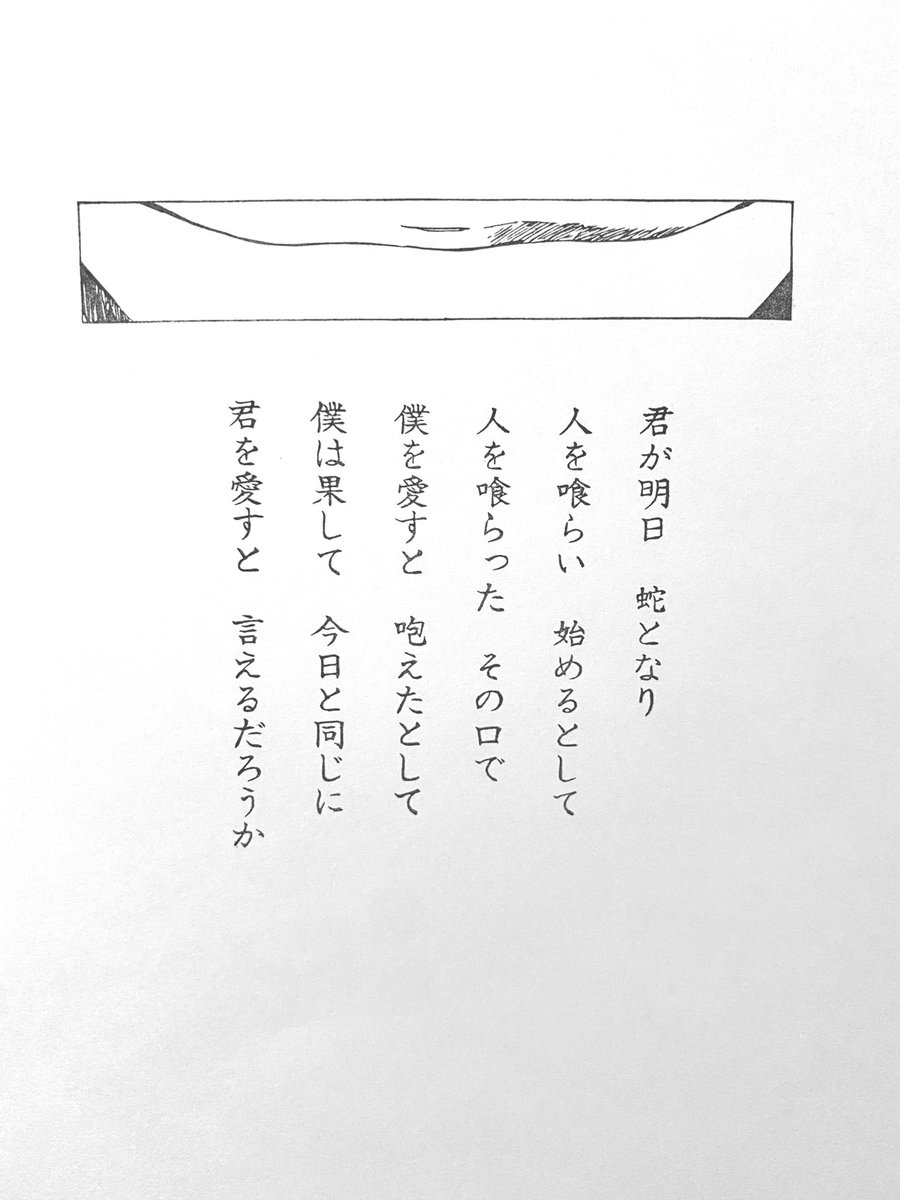 君が明日　蛇となり
人を喰らい　始めるとして
人を喰らった　その口で
僕を愛すと　咆えたとして
僕は果して　今日と同じに
君を愛すと　言えるだろうか